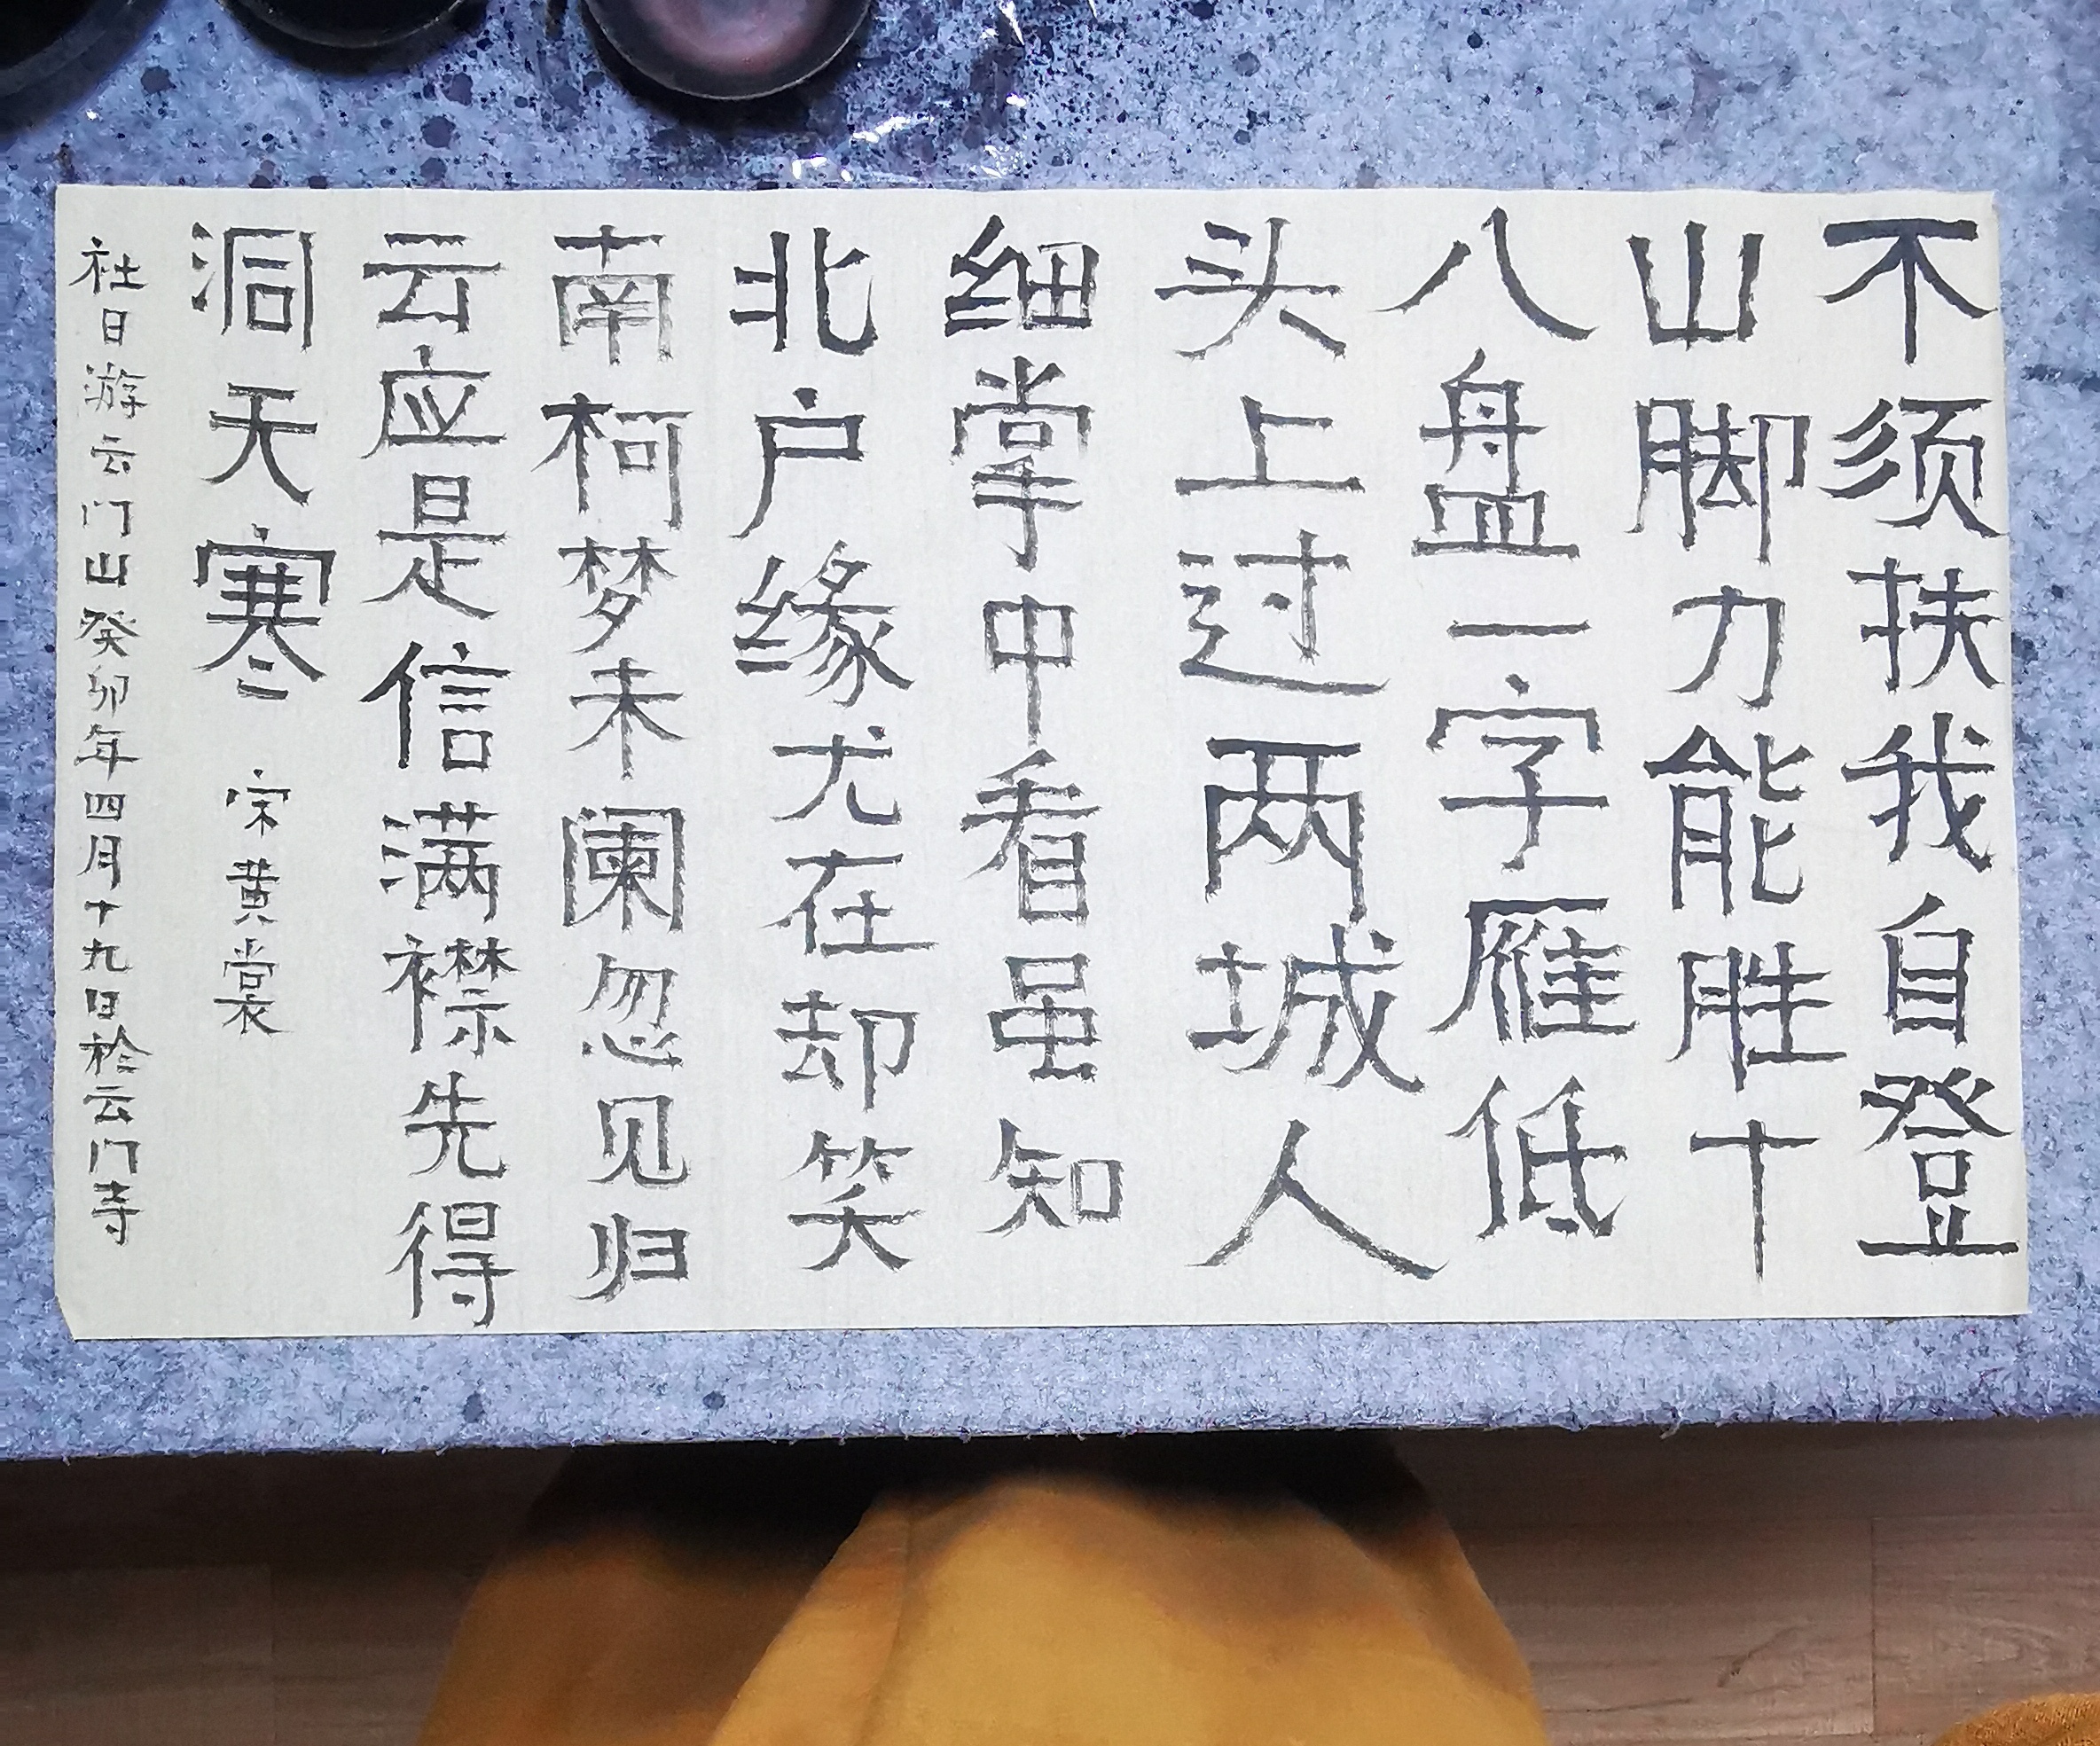 不须扶我自登
山脚力能胜十
八盘一字雁低
头上过两城人
细掌中看虽知
北户缘尤在却笑
南柯梦未阑忽见归
云应是信满襟先得
洞天寒 宋黄裳
社日游云门山癸卯年四月十九日於云门寺